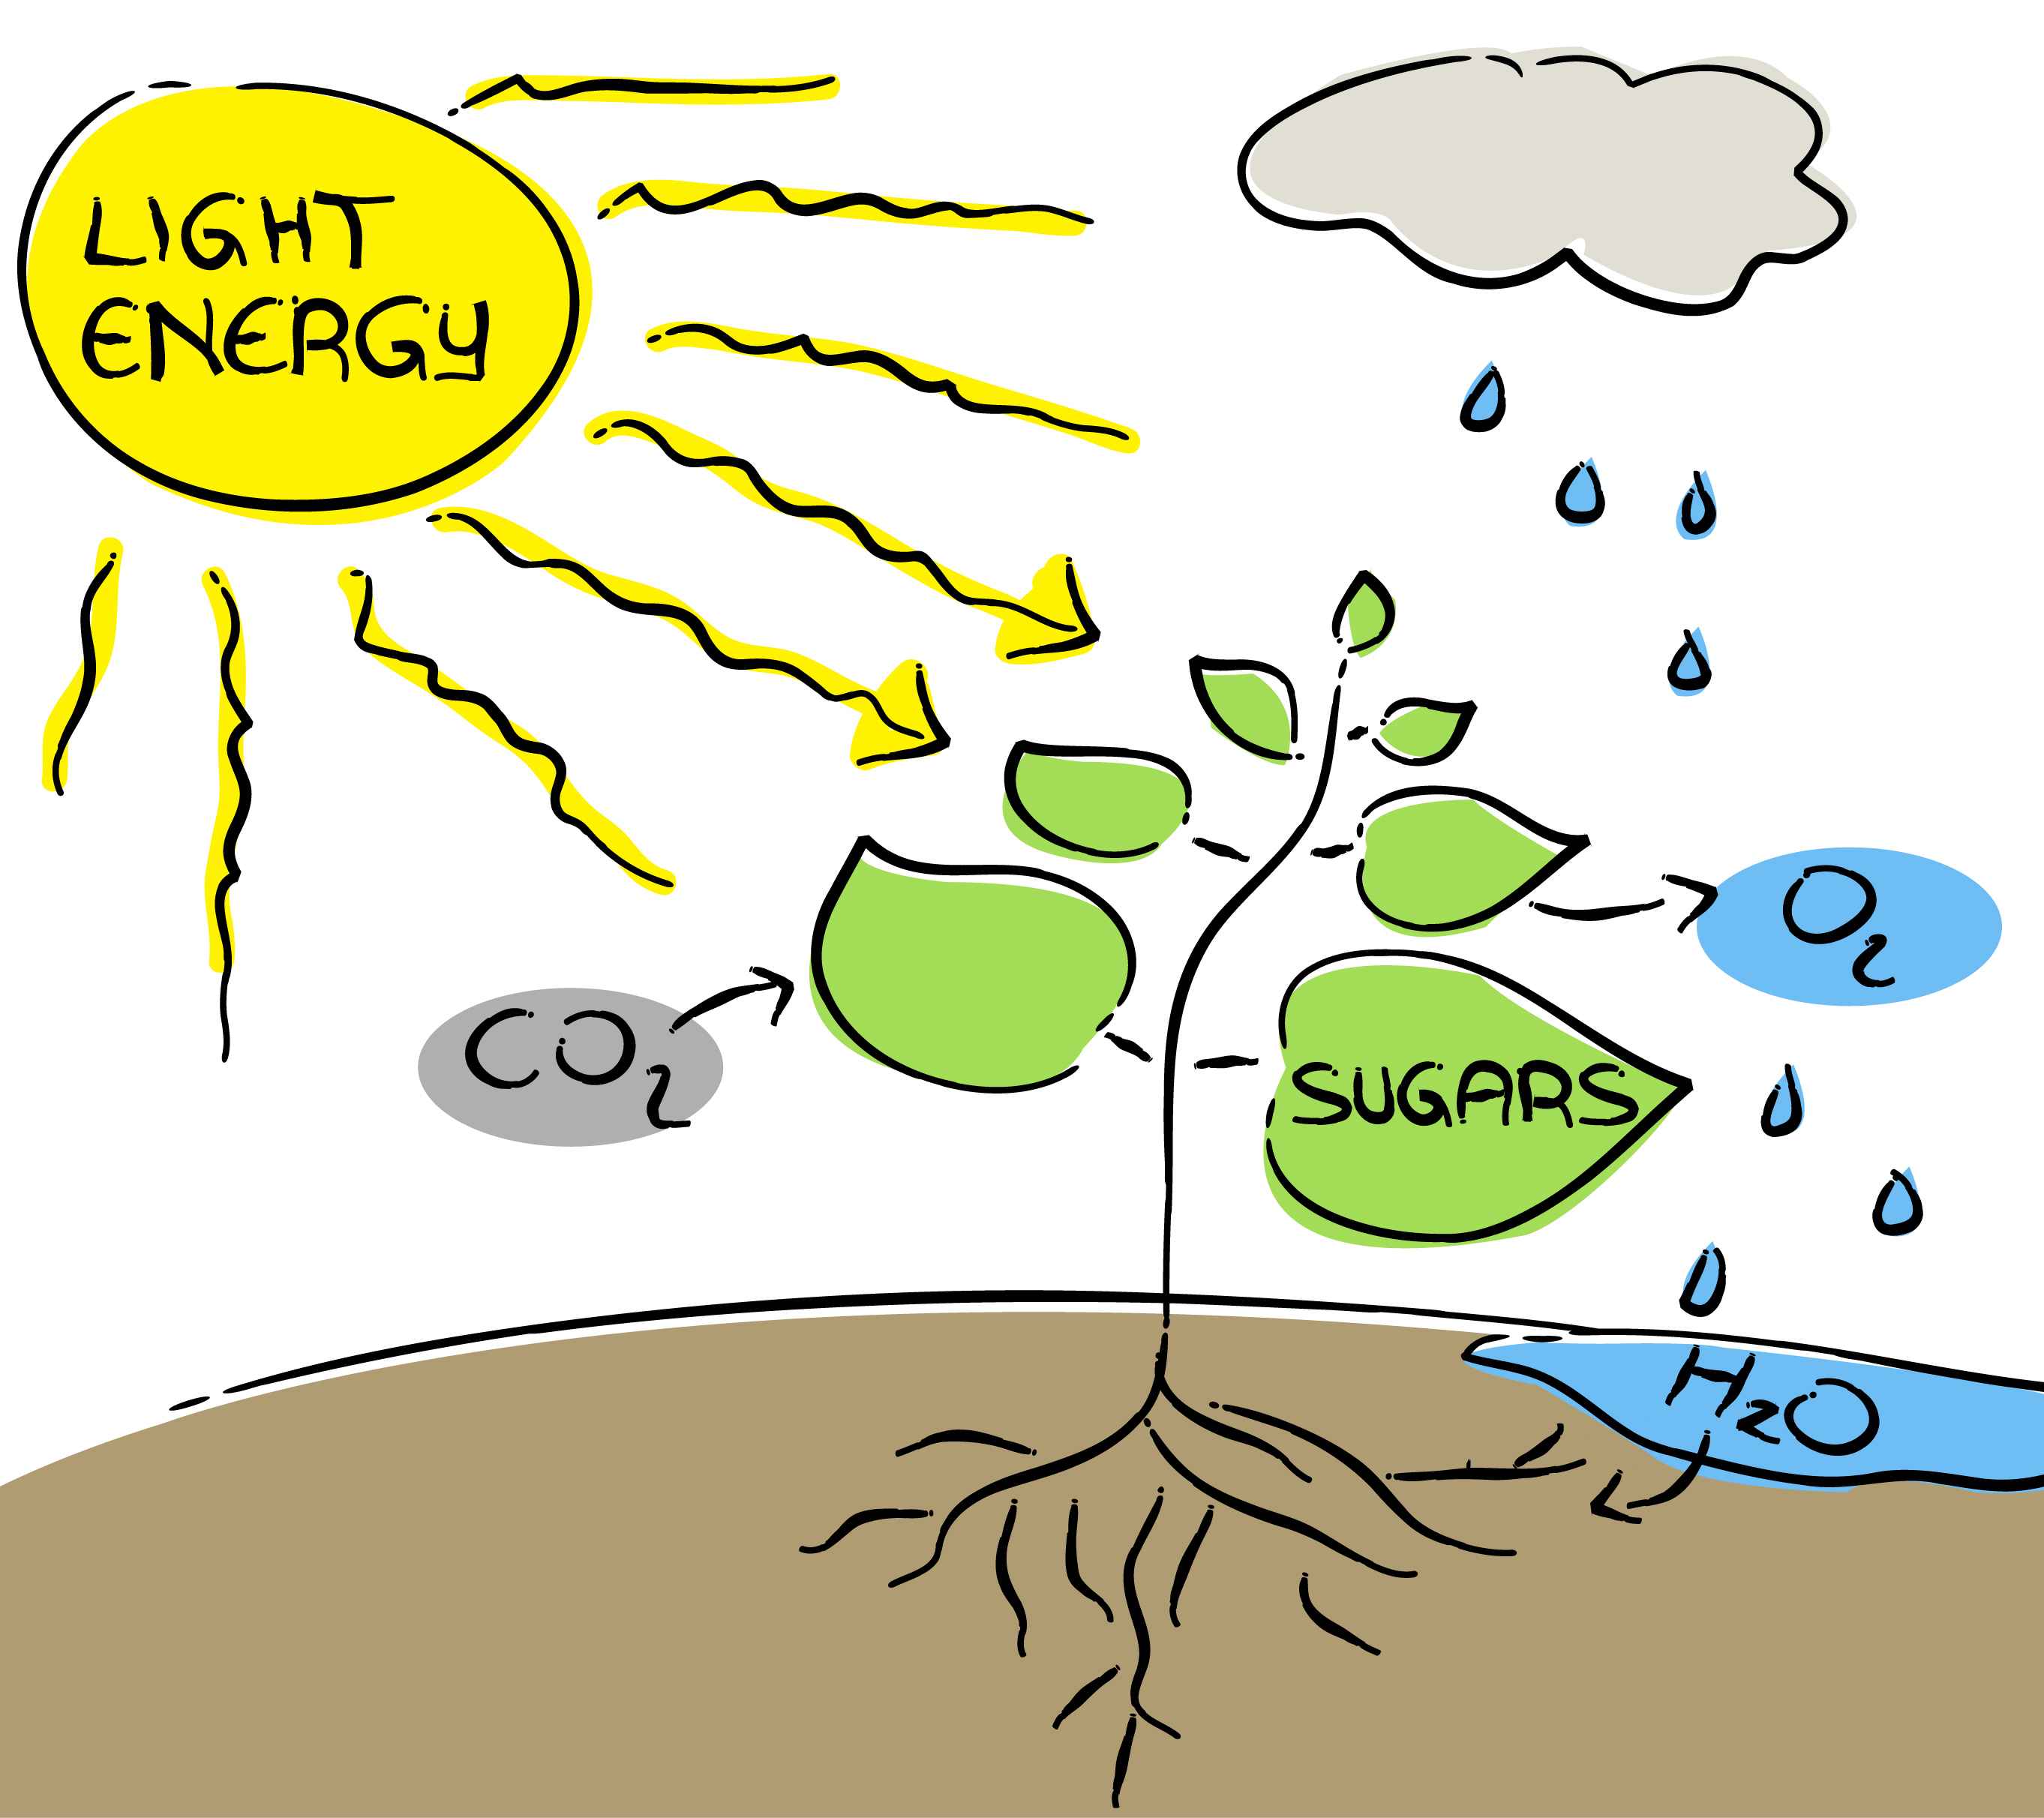 LIGHT
ENERGY
O₂
CO₂
SUGARS
H₂O